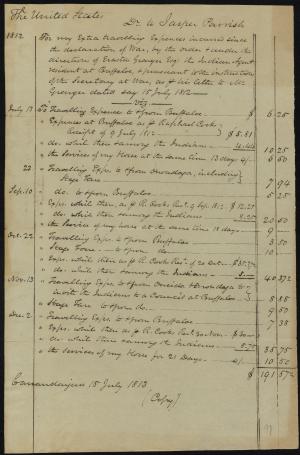 The United States
Dr to Jasper Parrish
1812
For my Extra travelling Expences incurred since
the declaration of War, by the order & under the
direction of Erastus Granger Esq. the Indian Agent
resident at Buffaloe, & pursuant to the instruction
of the Secretary at War, as & his letter to Mr
Granger dated say 15 July 1812
Viz.
July 13 To Travelling Expence to & from Buffaloe $ 6 25
" Expence at Buffaloe as & Raphael Cooks
Receipt of 9 July 1812 $ 5.81
" do. while there among the Indians
" the Services of my Horse at the same time 13 days 6 50
22 " Travelling Expe to & from Onondaga, including
Stage fare 7 94
Sep. 10 " do. to & from Buffaloe 5 25
" Expe. while there, as & R. Cooks Rect. 9 Sep. 1812 $ 12.25
" do while there among the Indians 8.25 20 50
" the Service of my horse at the same time 18 days 9 —
Oct. 22 " Travelling Expe. to & from Buffaloe 3 50
" Stage fare to & from do. 10
" Expe. while there as & R. Cooks Rect. of 20 Oct.
" do. while there among the Indians 40 37 2
Nov. 13 " Travelling Expe to & from Oneida & Onondaga to
invite the Indians to a Council at Buffaloe 8 85
" Stage fare to & from do. 9 50
Dec. 2 " Travelling Expe. to & from Buffaloe 7 38
" Expe. while there, as & R. Cooks Rect.
" do. while there among the Indians 5.75 35 75
" the Services of my Horse for 21 Days 10 50
$ 191 57 2
Canandaigua 15 July 1813
(Copy)